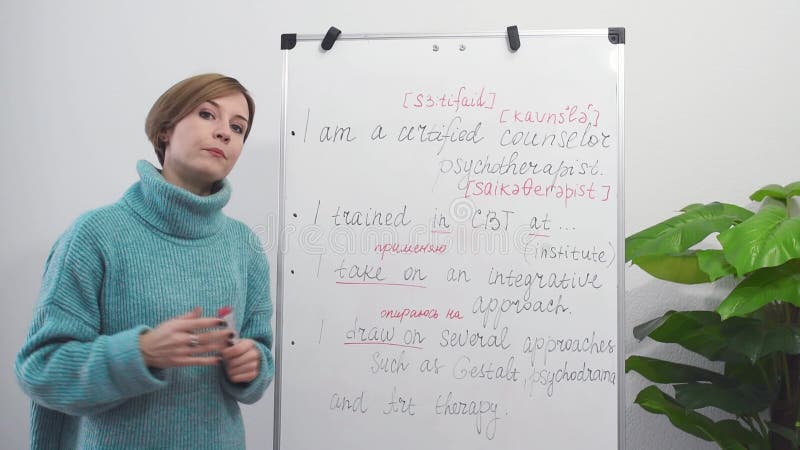 [sɜ:tifaid]
[kaunsələr]
• I am a certified counselor
psychotherapist.
[saikəθerəpist]
• I trained in CBT at ...
применяю (institute)
• I take on an integrative
опираюсь на approach.
• I draw on several approaches
such as Gestalt, psychodrama
and Art therapy.
dreamstime